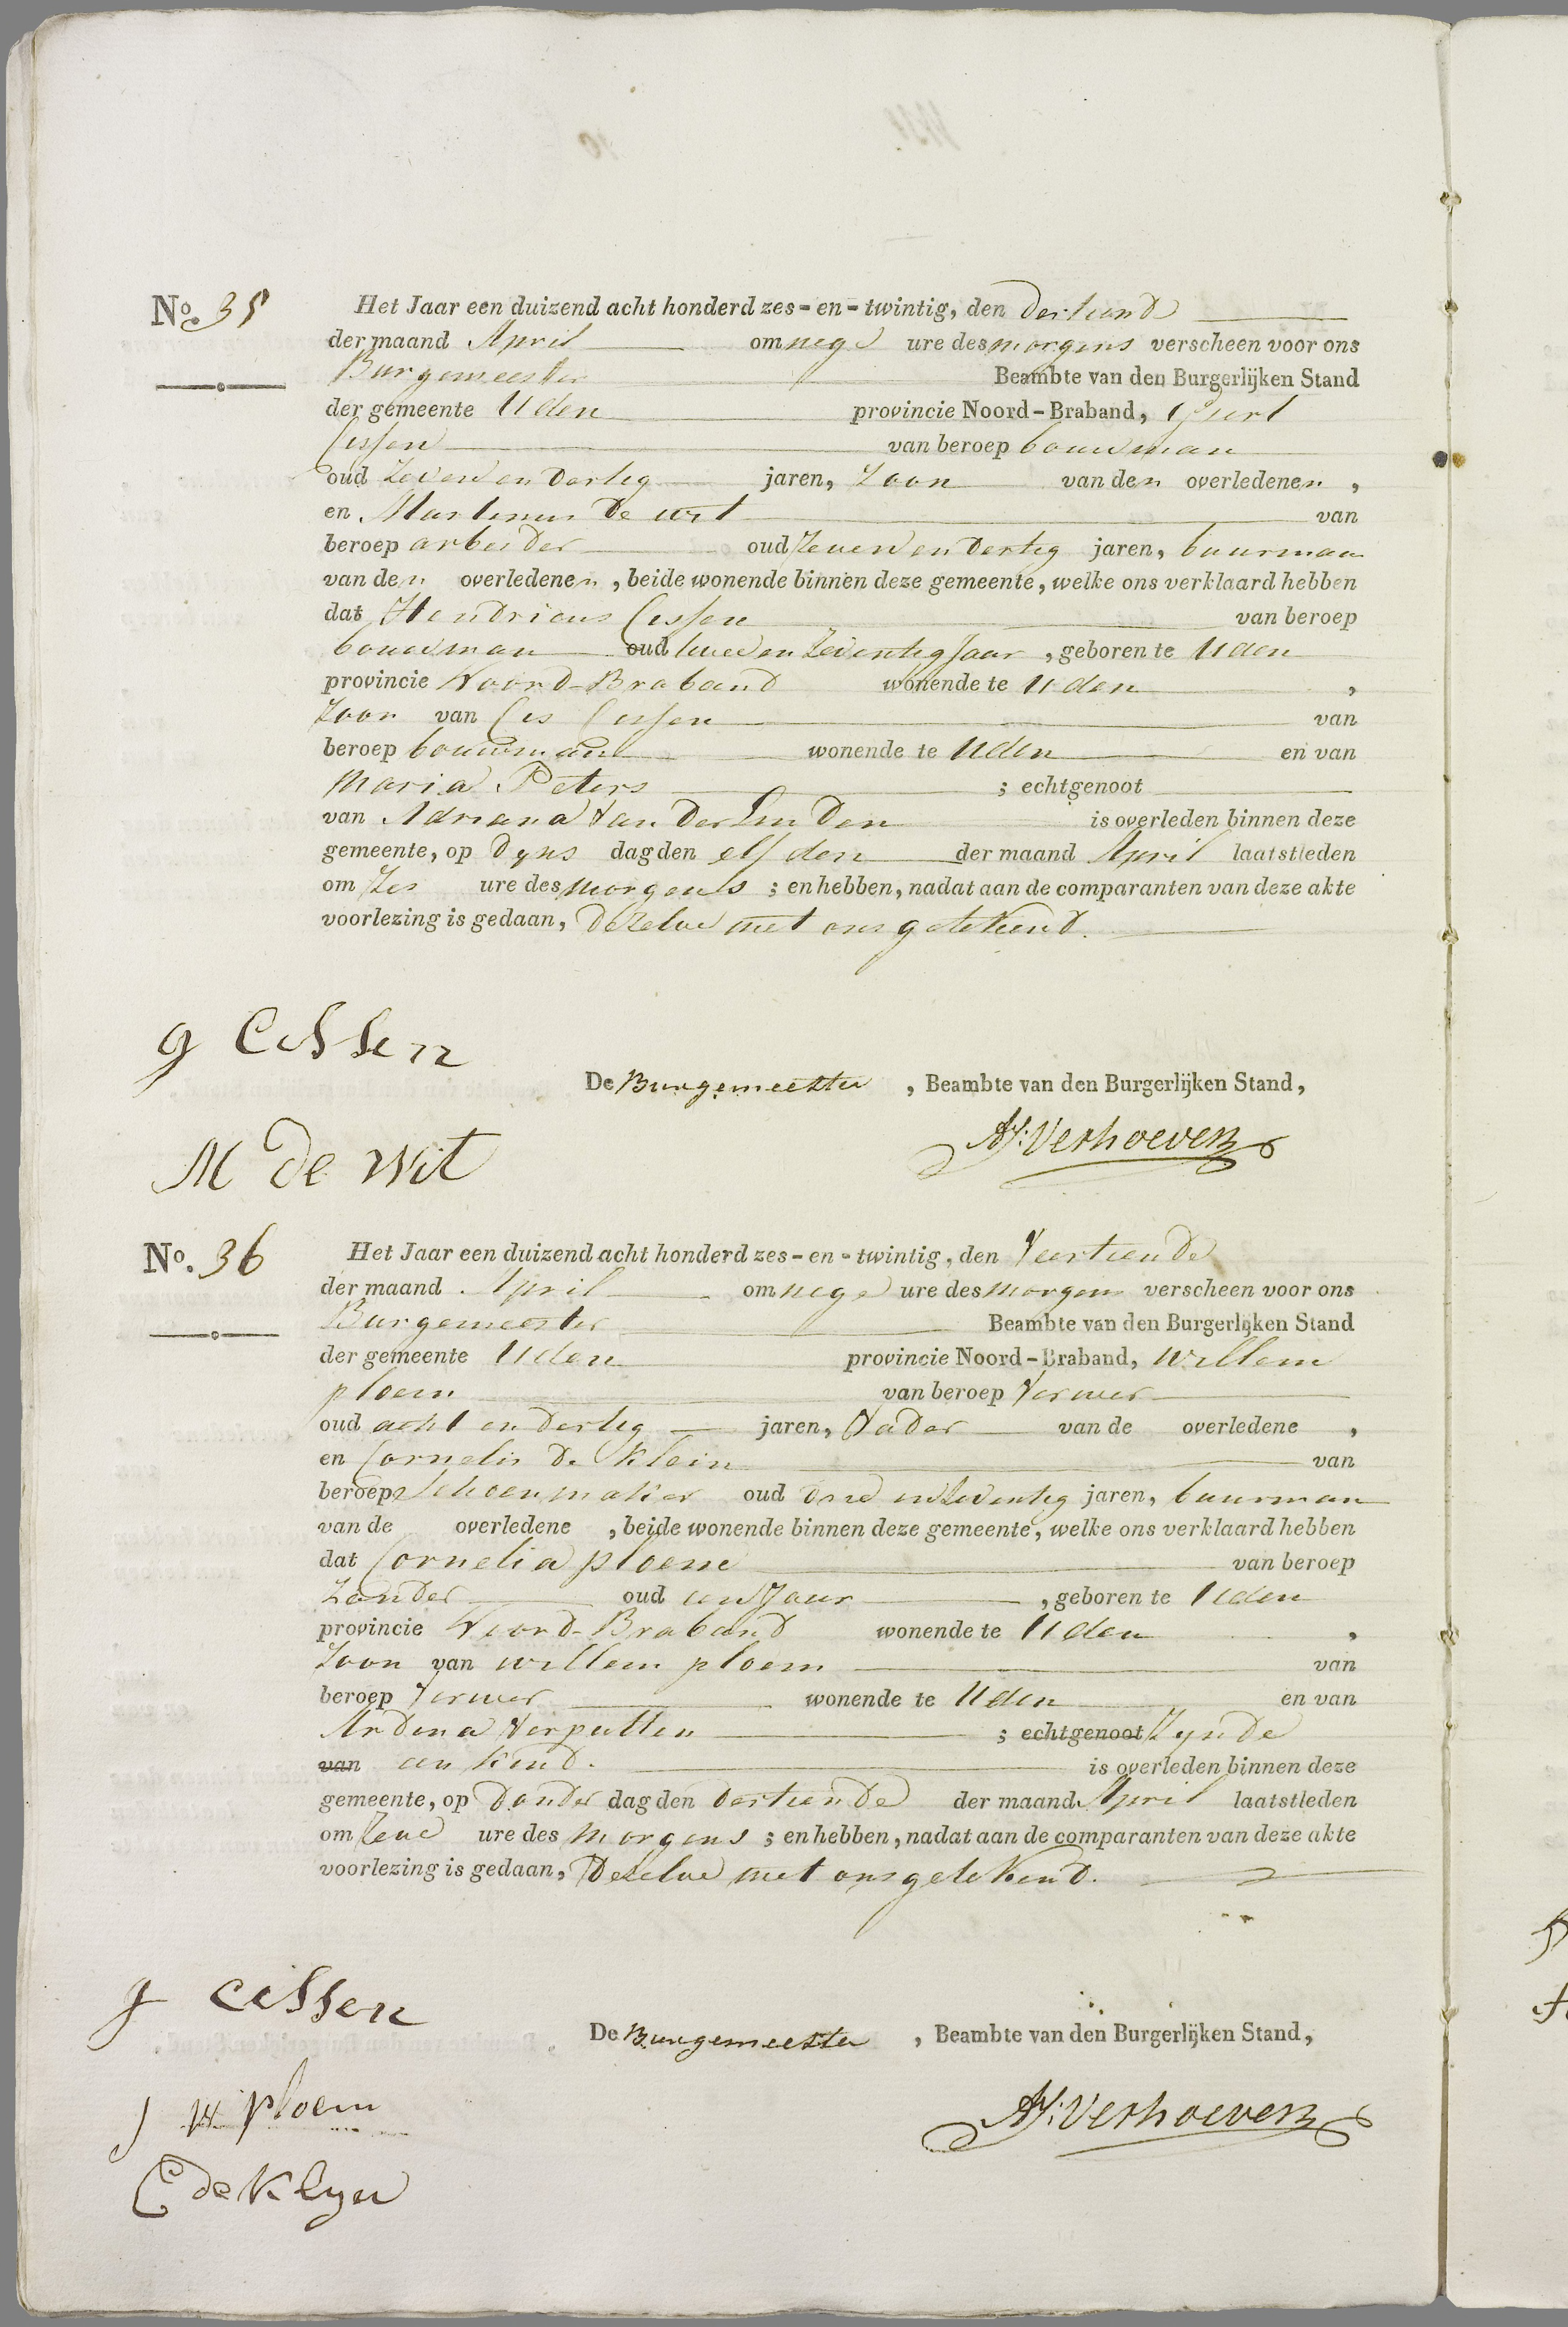 No. 35
Het Jaar een duizend acht honderd zes-en-twintig, den dertiend
der maand April om nege ure des morgens verscheen voor ons
Burgemeester Beambte van den Burgerlijken Stand
der gemeente Uden provincie Noord-Braband, Geert
Cissen van beroep bouwman
oud Zeven en dertig jaren, Zoon van den overledenen,
en Martinus De wit van
beroep arbeider oud Zeven en dertig jaren, buurman
van den overledenen, beide wonende binnen deze gemeente, welke ons verklaard hebben
dat Hendricus Cissen van beroep
bouwman oud twee en Zeventig Jaar, geboren te Uden
provincie Noord-Braband wonende te Uden,
Zoon van Cis Cissen van
beroep bouwman wonende te Uden en van
Maria Peters ; echtgenoot
van Adriana Van Der Linden is overleden binnen deze
gemeente, op dyns dag den elfden der maand April laatstleden
om Zes ure des morgens ; en hebben, nadat aan de comparanten van deze akte
voorlezing is gedaan, dezelve met ons getekend.
g Cissen
De Burgemeester, Beambte van den Burgerlijken Stand,
Verhoeven
M de Wit
No. 36
Het Jaar een duizend acht honderd zes-en-twintig, den Veertiende
der maand April om nege ure des morgens verscheen voor ons
Burgemeester Beambte van den Burgerlijken Stand
der gemeente Uden provincie Noord-Braband, Willem
ploem van beroep Verwer
oud acht en dertig jaren, Vader van de overledene,
en Cornelis De Klein van
beroep schoenmaker oud drie en Zeventig jaren, buurman
van de overledene, beide wonende binnen deze gemeente, welke ons verklaard hebben
dat Cornelia ploem van beroep
Zonder oud een Jaar, geboren te Uden
provincie Noord-Braband wonende te Uden,
Zoon van willem ploem van
beroep Verwer wonende te Uden en van
Ardina Verputten ; echtgenoot Zynde
van een Kind. is overleden binnen deze
gemeente, op donder dag den dertiende der maand April laatstleden
om Zeve ure des morgens ; en hebben, nadat aan de comparanten van deze akte
voorlezing is gedaan, Dezelve met ons getekend.
g cissen
De Burgemeester, Beambte van den Burgerlijken Stand,
J W ploem
Verhoeven
C de Klyn